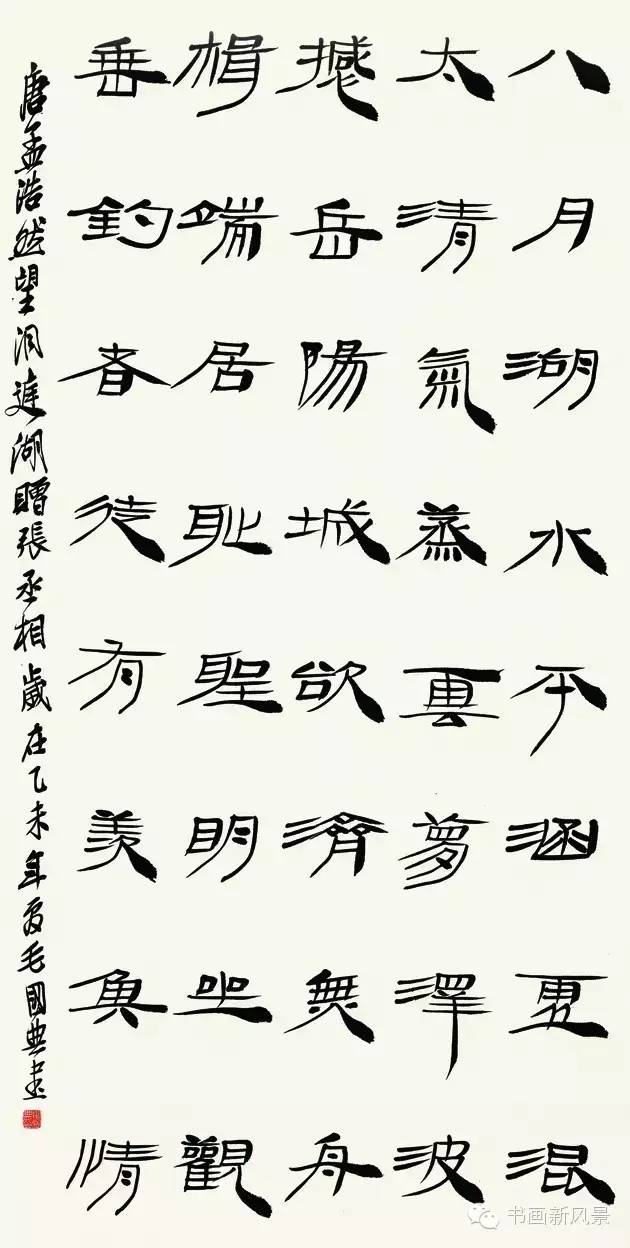 八月湖水平涵虛混
太清氣蒸雲夢澤波
撼岳陽城欲濟無舟
楫端居耻聖明坐觀
垂釣者徒有羨魚情
唐孟浩然望洞庭湖贈張丞相歲在乙未年夏毛國典書
书画新风景